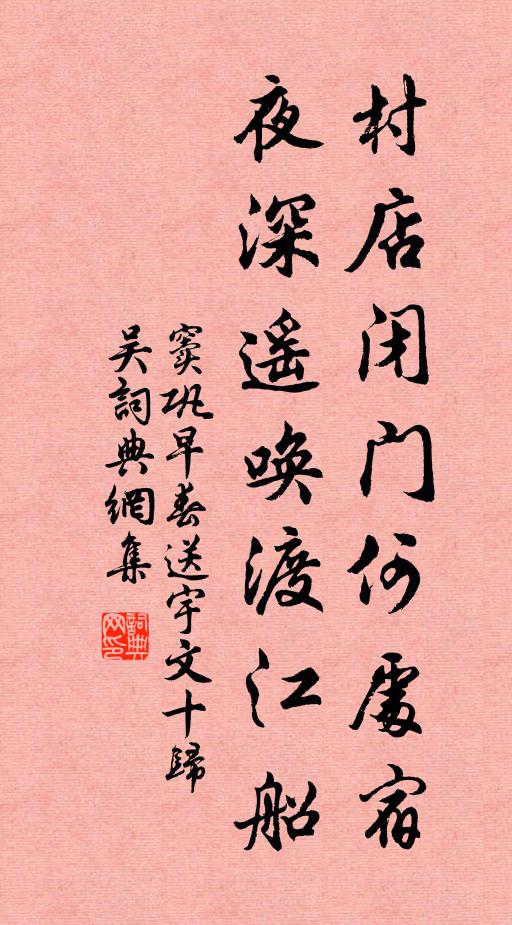 村店闭门何處宿
夜深遥唤渡江船
窦巩早春送宇文十歸
吴詞典網集
詞典
网印